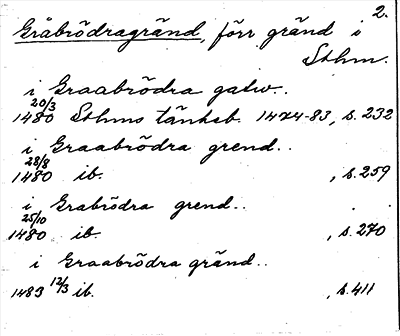 2.
Gråbrödragränd, förr gränd i
Sthm.
i Graabrödra gatw..
20/3
1480 Sthms tänkeb. 1474-83, s. 232
i Graabrödra grend..
28/8
1480 ib. , s. 259
i Grabrödra grend..
25/10
1480 ib. , s. 270
i Graabrödra gränd..
1483 12/3 ib. , s. 411